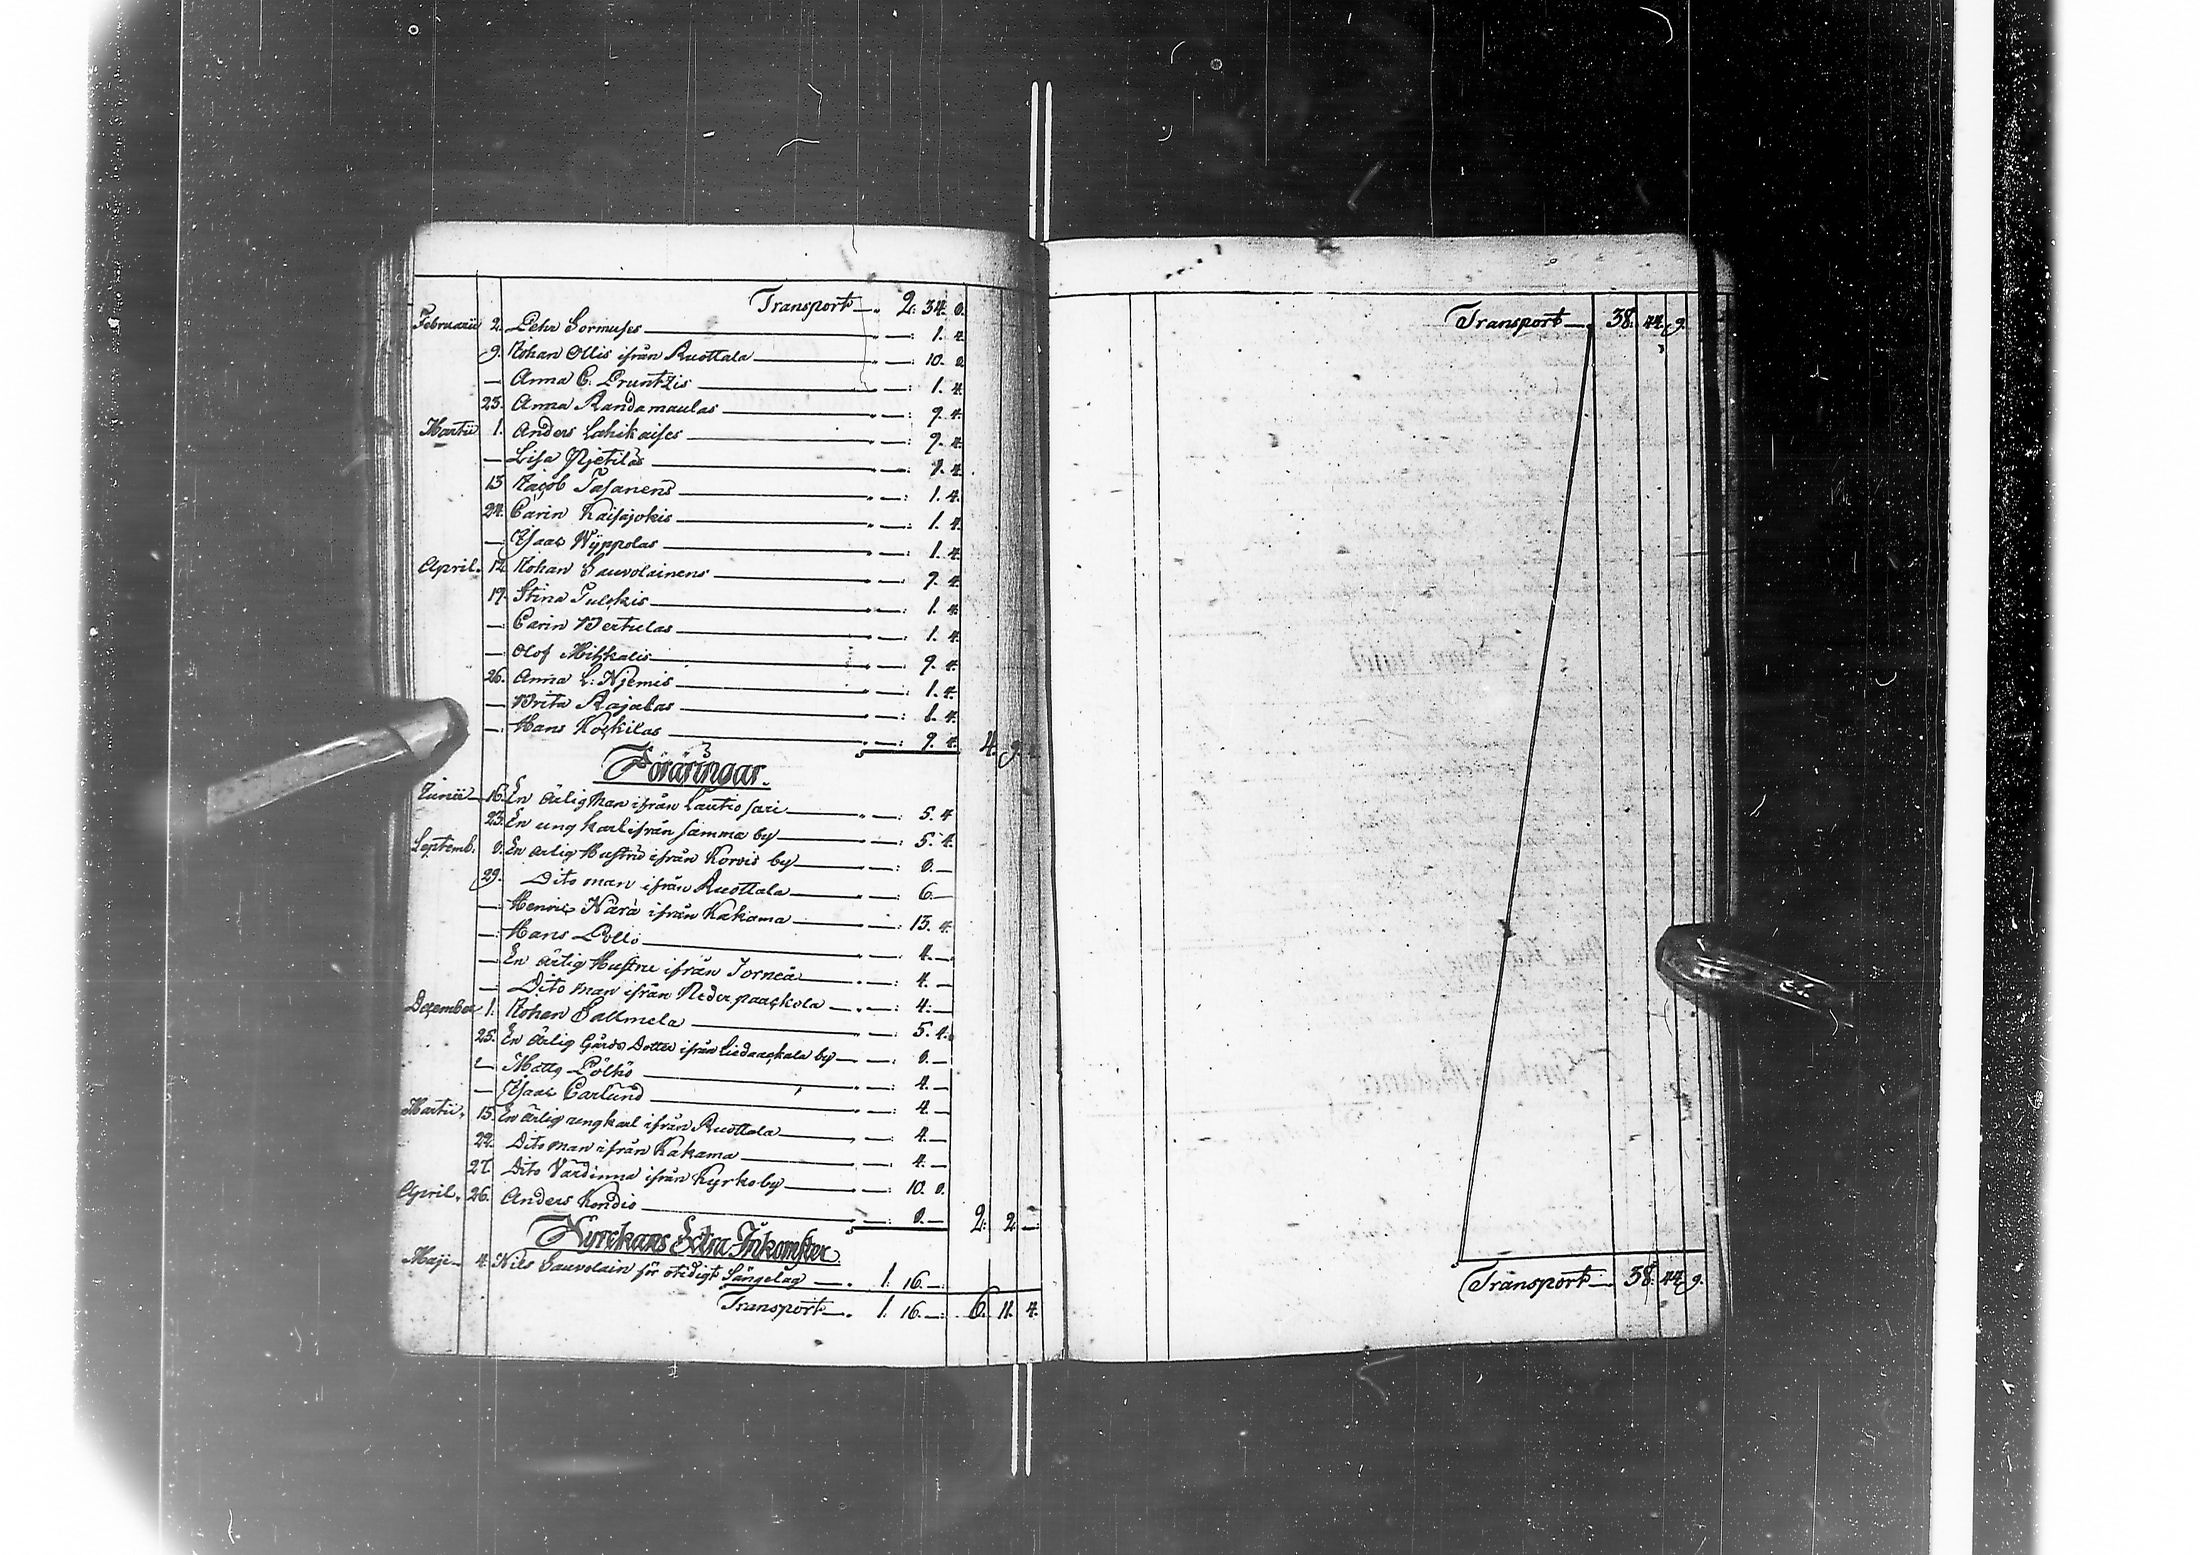 Transport —. 2. 34. 8.
Februarii 2. Pehr Sormuses — 1. 4.
9. Johan Ollis ifrån Ruottala — 10. 8
— Anna C. Pruntzis — 1. 4.
23. Anna Randamaulas — 9. 4.
Martii 1. Anders Lahikaises — 9. 4.
— Lisa Njetilas — 1. 4.
13 Jacob Tasanens — 1. 4.
24. Carin Kaisajokis — 1. 4.
— Isaac Wyppolas — 1. 4.
April. 12. Johan Sauvolainens — 9. 4.
17. Stina Tulckis — 1. 4.
— Carin Bertulas — 1. 4.
— Olof Mitkalis — 9. 4.
26. Anna L: Njemis — 1. 4.
— Brita Rajalas — 1. 4.
— Hans Koskilas — 9. 4. 4. 9.
Föräringar.
Junii — 16. En ärlig Man ifrån Lautiosari — 5. 4
23. En ung karl ifrån samma by — 5. 4.
Septemb. 8. En ärlig Hustru ifrån Korvis by — 8. —
29. Dito man ifrån Ruottala — 6. —
— Henric Närä ifrån Kakama — 13. 4.
— Hans Pello — 4. —
— En ärlig Hustru ifrån Torneå — 4. —
— Dito man ifrån Neder paackola — 4. —
December 1. Johan Sallmela — 5. 4.
25. En ärlig Gårds Dotter ifrån Liedaackala by — 8. —
— Matts Pölhö — 4. —
— Isaac Carlund — 4. —
Martii, 15. En ärlig ungkarl ifrån Ruottala — 4. —
22. Dito man ifrån Kakama — 4. —
27. Dito Värdinna ifrån Kyrkoby — 10. 8.
April, 26. Anders Kondio — 8. — 2. 2. —
Kyrckans Extra Inkomster.
Maji — 4. Nils Sauvolain för otidigt Sängelag —. 1. 16. —
Transport —. 1. 16. —. 6. 11. 4.
Transport —. 38. 44. 9.
Transport — 38. 44. 9.